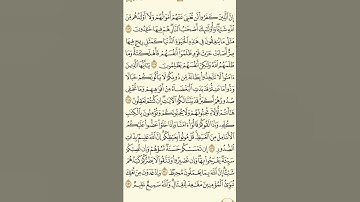 إِنَّ ٱلَّذِينَ كَفَرُوا۟ لَن تُغْنِىَ عَنْهُمْ أَمْوَٰلُهُمْ وَلَآ أَوْلَٰدُهُم مِّنَ
ٱللَّهِ شَيْـًٔا ۖ وَأُو۟لَٰٓئِكَ أَصْحَٰبُ ٱلنَّارِ ۚ هُمْ فِيهَا خَٰلِدُونَ
مَثَلُ مَا يُنفِقُونَ فِى هَٰذِهِ ٱلْحَيَوٰةِ ٱلدُّنْيَا كَمَثَلِ رِيحٍ فِيهَا
صِرٌّ أَصَابَتْ حَرْثَ قَوْمٍ ظَلَمُوٓا۟ أَنفُسَهُمْ فَأَهْلَكَتْهُ ۚ وَمَا
ظَلَمَهُمُ ٱللَّهُ وَلَٰكِنْ أَنفُسَهُمْ يَظْلِمُونَ يَٰٓأَيُّهَا ٱلَّذِينَ
ءَامَنُوا۟ لَا تَتَّخِذُوا۟ بِطَانَةً مِّن دُونِكُمْ لَا يَأْلُونَكُمْ خَبَالًا
وَدُّوا۟ مَا عَنِتُّمْ قَدْ بَدَتِ ٱلْبَغْضَآءُ مِنْ أَفْوَٰهِهِمْ وَمَا تُخْفِى
صُدُورُهُمْ أَكْبَرُ ۚ قَدْ بَيَّنَّا لَكُمُ ٱلْـَٔايَٰتِ ۖ إِن كُنتُمْ تَعْقِلُونَ
هَٰٓأَنتُمْ أُو۟لَآءِ تُحِبُّونَهُمْ وَلَا يُحِبُّونَكُمْ وَتُؤْمِنُونَ بِٱلْكِتَٰبِ
كُلِّهِۦ وَإِذَا لَقُوكُمْ قَالُوٓا۟ ءَامَنَّا وَإِذَا خَلَوْا۟ عَضُّوا۟ عَلَيْكُمُ
ٱلْأَنَامِلَ مِنَ ٱلْغَيْظِ ۚ قُلْ مُوتُوا۟ بِغَيْظِكُمْ ۗ إِنَّ ٱللَّهَ عَلِيمٌۢ بِذَاتِ
ٱلصُّدُورِ إِن تَمْسَسْكُمْ حَسَنَةٌ تَسُؤْهُمْ وَإِن تُصِبْكُمْ
سَيِّئَةٌ يَفْرَحُوا۟ بِهَا ۖ وَإِن تَصْبِرُوا۟ وَتَتَّقُوا۟ لَا يَضُرُّكُمْ كَيْدُهُمْ
شَيْـًٔا ۗ إِنَّ ٱللَّهَ بِمَا يَعْمَلُونَ مُحِيطٌ وَإِذْ غَدَوْتَ مِنْ أَهْلِكَ
تُبَوِّئُ ٱلْمُؤْمِنِينَ مَقَٰعِدَ لِلْقِتَالِ ۗ وَٱللَّهُ سَمِيعٌ عَلِيمٌ